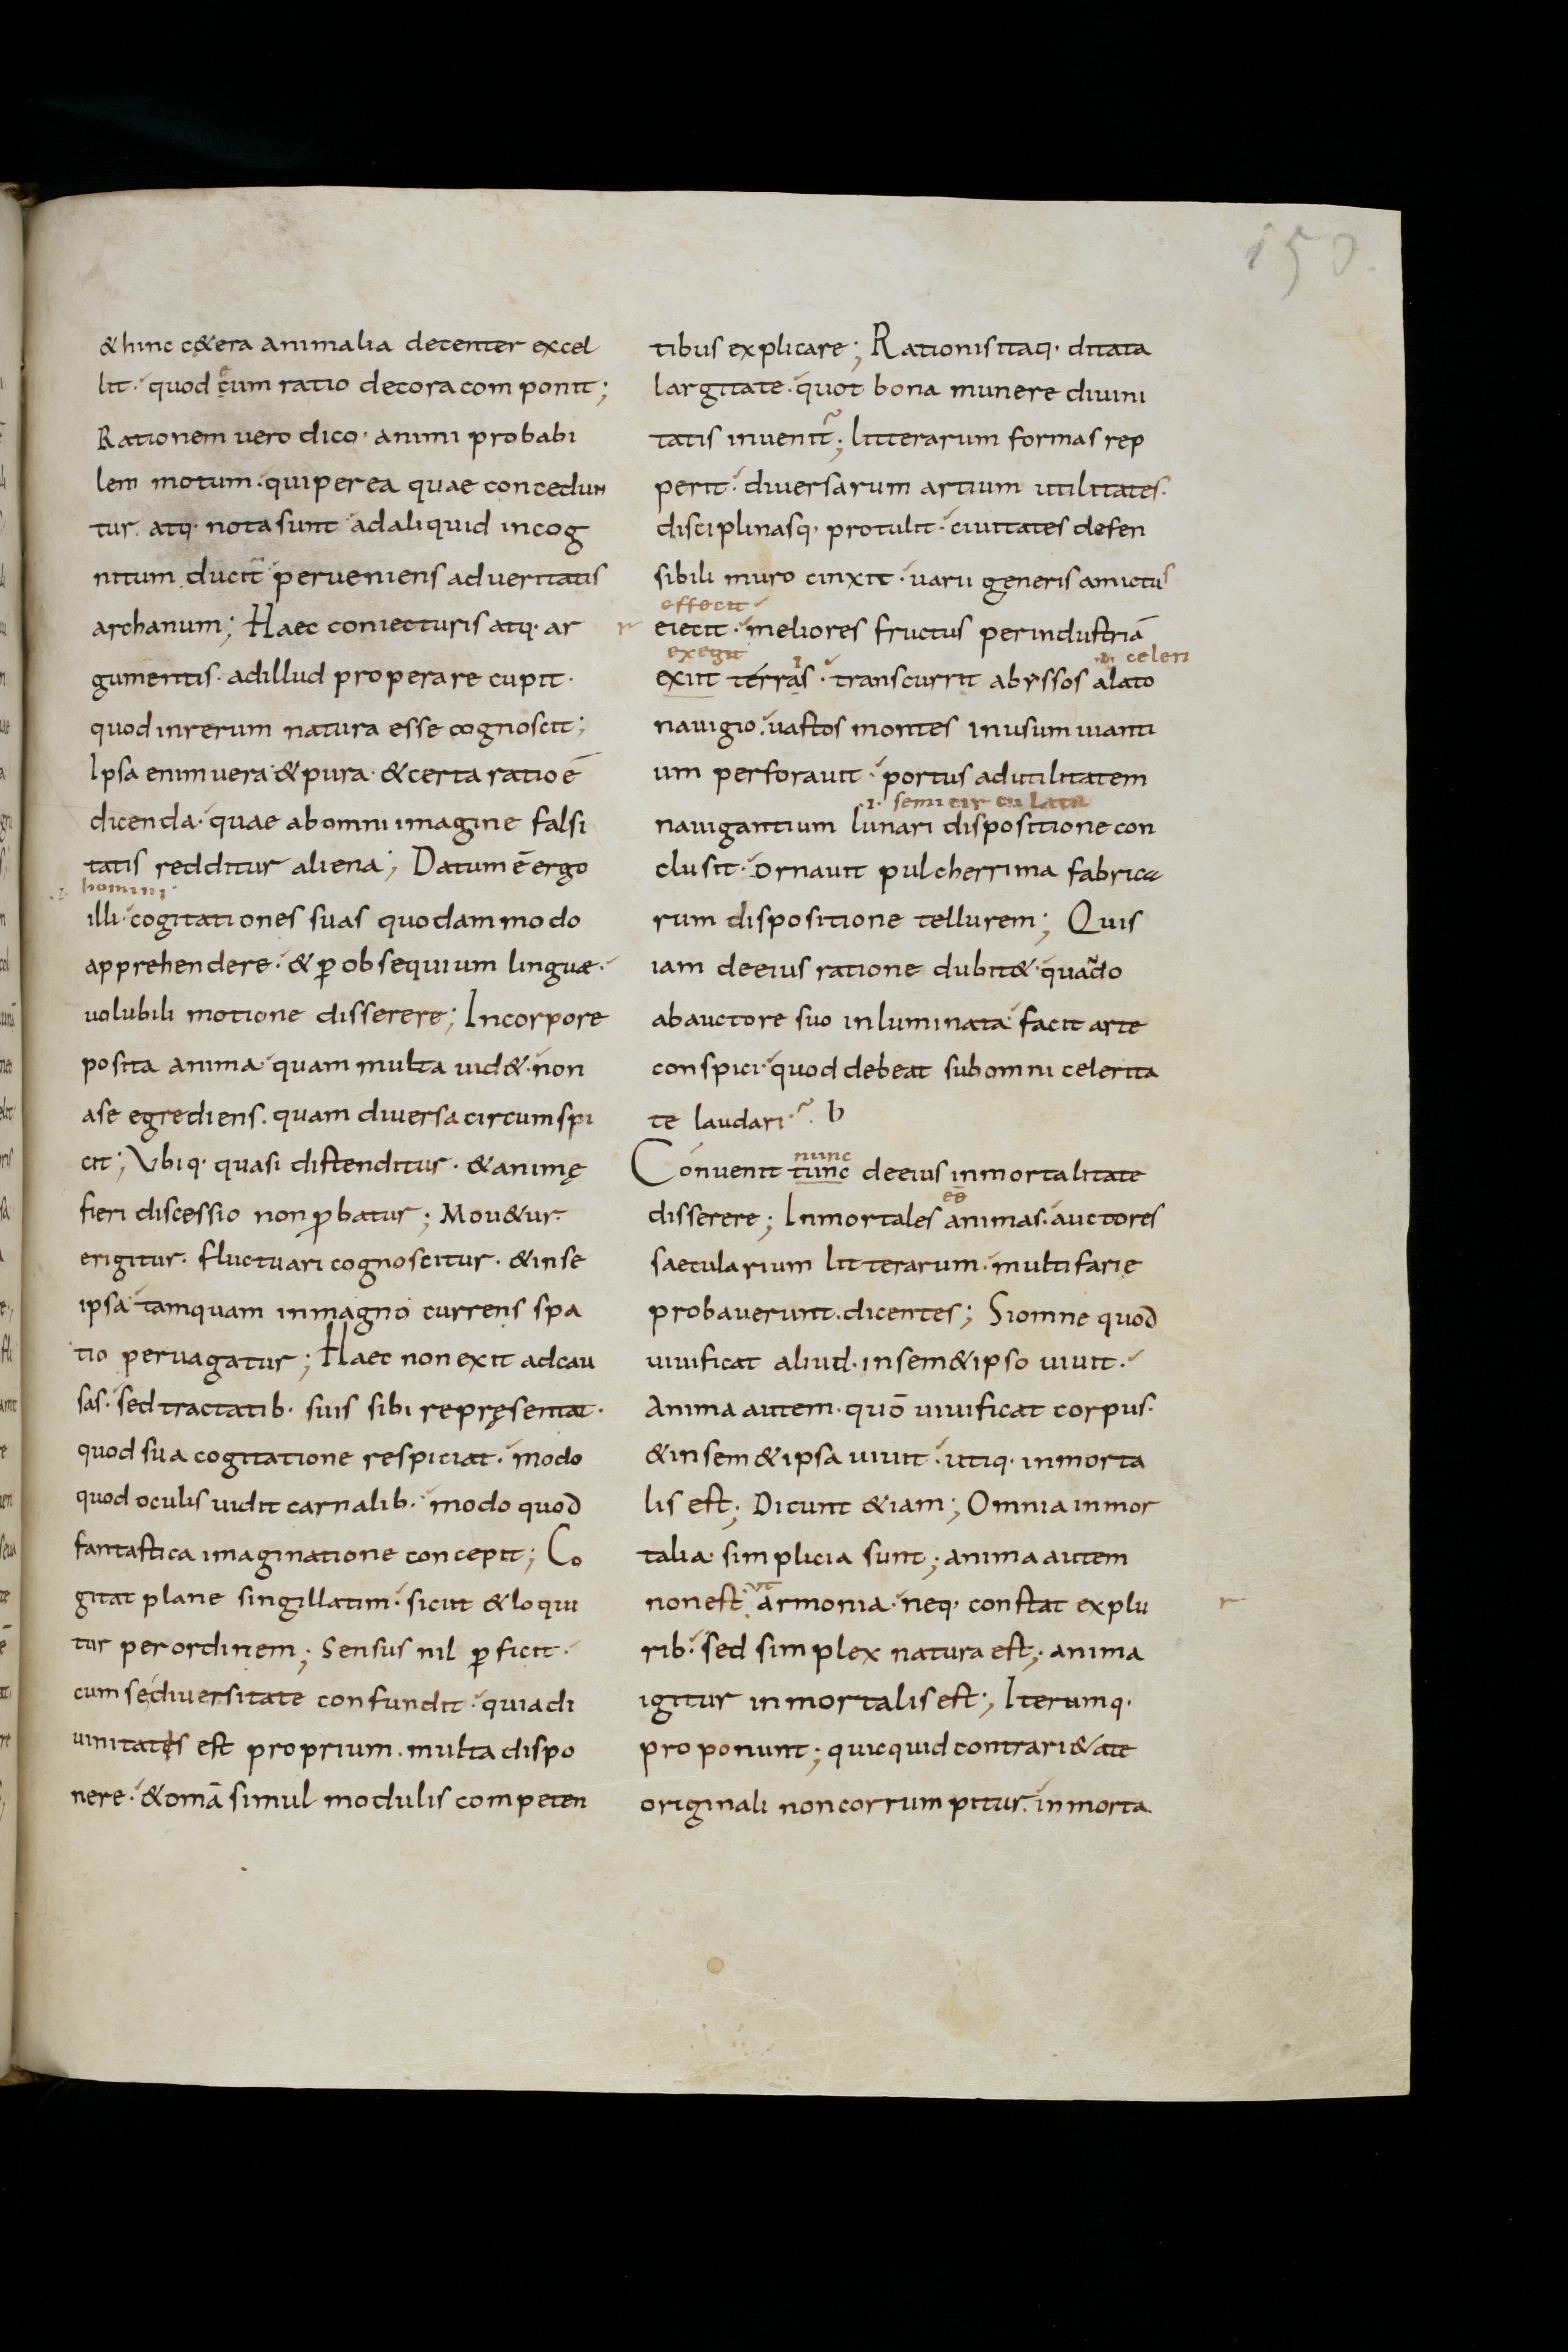 150.
& hinc c&era animalia decenter excel
lit· quod eum ratio decora componit;
Rationem uero dico· animi probabi
lem motum· qui per ea quae concedun
tur· atq· nota sunt ad aliquid incog
nitum ducit perueniens ad ueritatis
archanum; Haec coniecturis atq· ar
gumentis· ad illud properare cupit·
quod in rerum natura esse cognoscit;
Ipsa enim uera & pura· & certa ratio ē
dicenda· quae ab omni imagine falsi
tatis redditur aliena; Datum ē ergo
.i. homini·
illi· cogitationes suas quodammodo
apprehendere· & ꝑ obsequium linguae·
uolubili motione disserere; In corpore
posita anima· quam multa uid&· non
a se egrediens· quam diuersa circumspi
cit; Vbiq· quasi distenditur· & animę
fieri discessio non ꝓbatur; Mou&ur·
erigitur· fluctuari cognoscitur· & in se
ipsa tamquam in magno currens spa
tio peruagatur; Haec non exit ad cau
sas· sed tractatib· suis sibi repręsentat·
quod sua cogitatione respiciat· modo
quod oculis uidit carnalib· modo quod
fantastica imaginatione concepit; Co
gitat plane singillatim· sicut & loqui
tur per ordinem; Sensus nil ꝑficit·
cum se diuersitate confundit· quia di
uinitatis est proprium· multa dispo
nere· & omā simul modulis competen
tibus explicare; Rationis itaq· ditata
largitate· quot bona munere diuini
tatis inuenit; litterarum formas rep
perit· diuersarum artium utilitates·
disciplinasq· protulit· ciuitates defen
sibili muro cinxit· uarii generis amictus
effecit
r eiecit· meliores fructus per industriā
exegit .i. celeri
exiit terras· transcurrit abyssos alato
nauigio· uastos montes in usum uianti
um perforauit· portus ad utilitatem
.i. semicirculata
nauigantium lunari dispositione con
clusit· ornauit pulcherrima fabrica
rum dispositione tellurem; Quis
iam de eius ratione dubit&· quādo
ab auctore suo inluminata facit arte
conspici· quod debeat sub omni celerita
te laudari·
nunc
Conuenit tunc de eius inmortalitate
disserere; Inmortales animas· auctores
saecularium litterarum· multifarie
probauerunt· dicentes; Si omne quod
uiuificat aliud· in sem&ipso uiuit·
anima autem· quō uiuificat corpus·
& in sem&ipsa uiuit· utiq· inmorta
lis est; Dicunt &iam; Omnia inmor
talia· simplicia sunt; anima autem
non est armonia· neq· constat ex plu r
rib· sed simplex natura est; anima
igitur inmortalis est; Iterumq·
proponunt; quicquid contrari&ate
originali non corrumpitur· inmorta